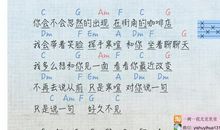 C G Am F C G
你会不会忽然的出现 在街角的咖啡店
Dm F Em Am Dm F G
我会带着笑脸 挥手寒暄 和你 坐着聊聊天
C G Am F C G
我多么想和你见一面 看看你最近改变
Dm F Em Am Dm F
不再去说从前 只是寒暄 对你说一句
C Am F G C
只是说一句 好久不见